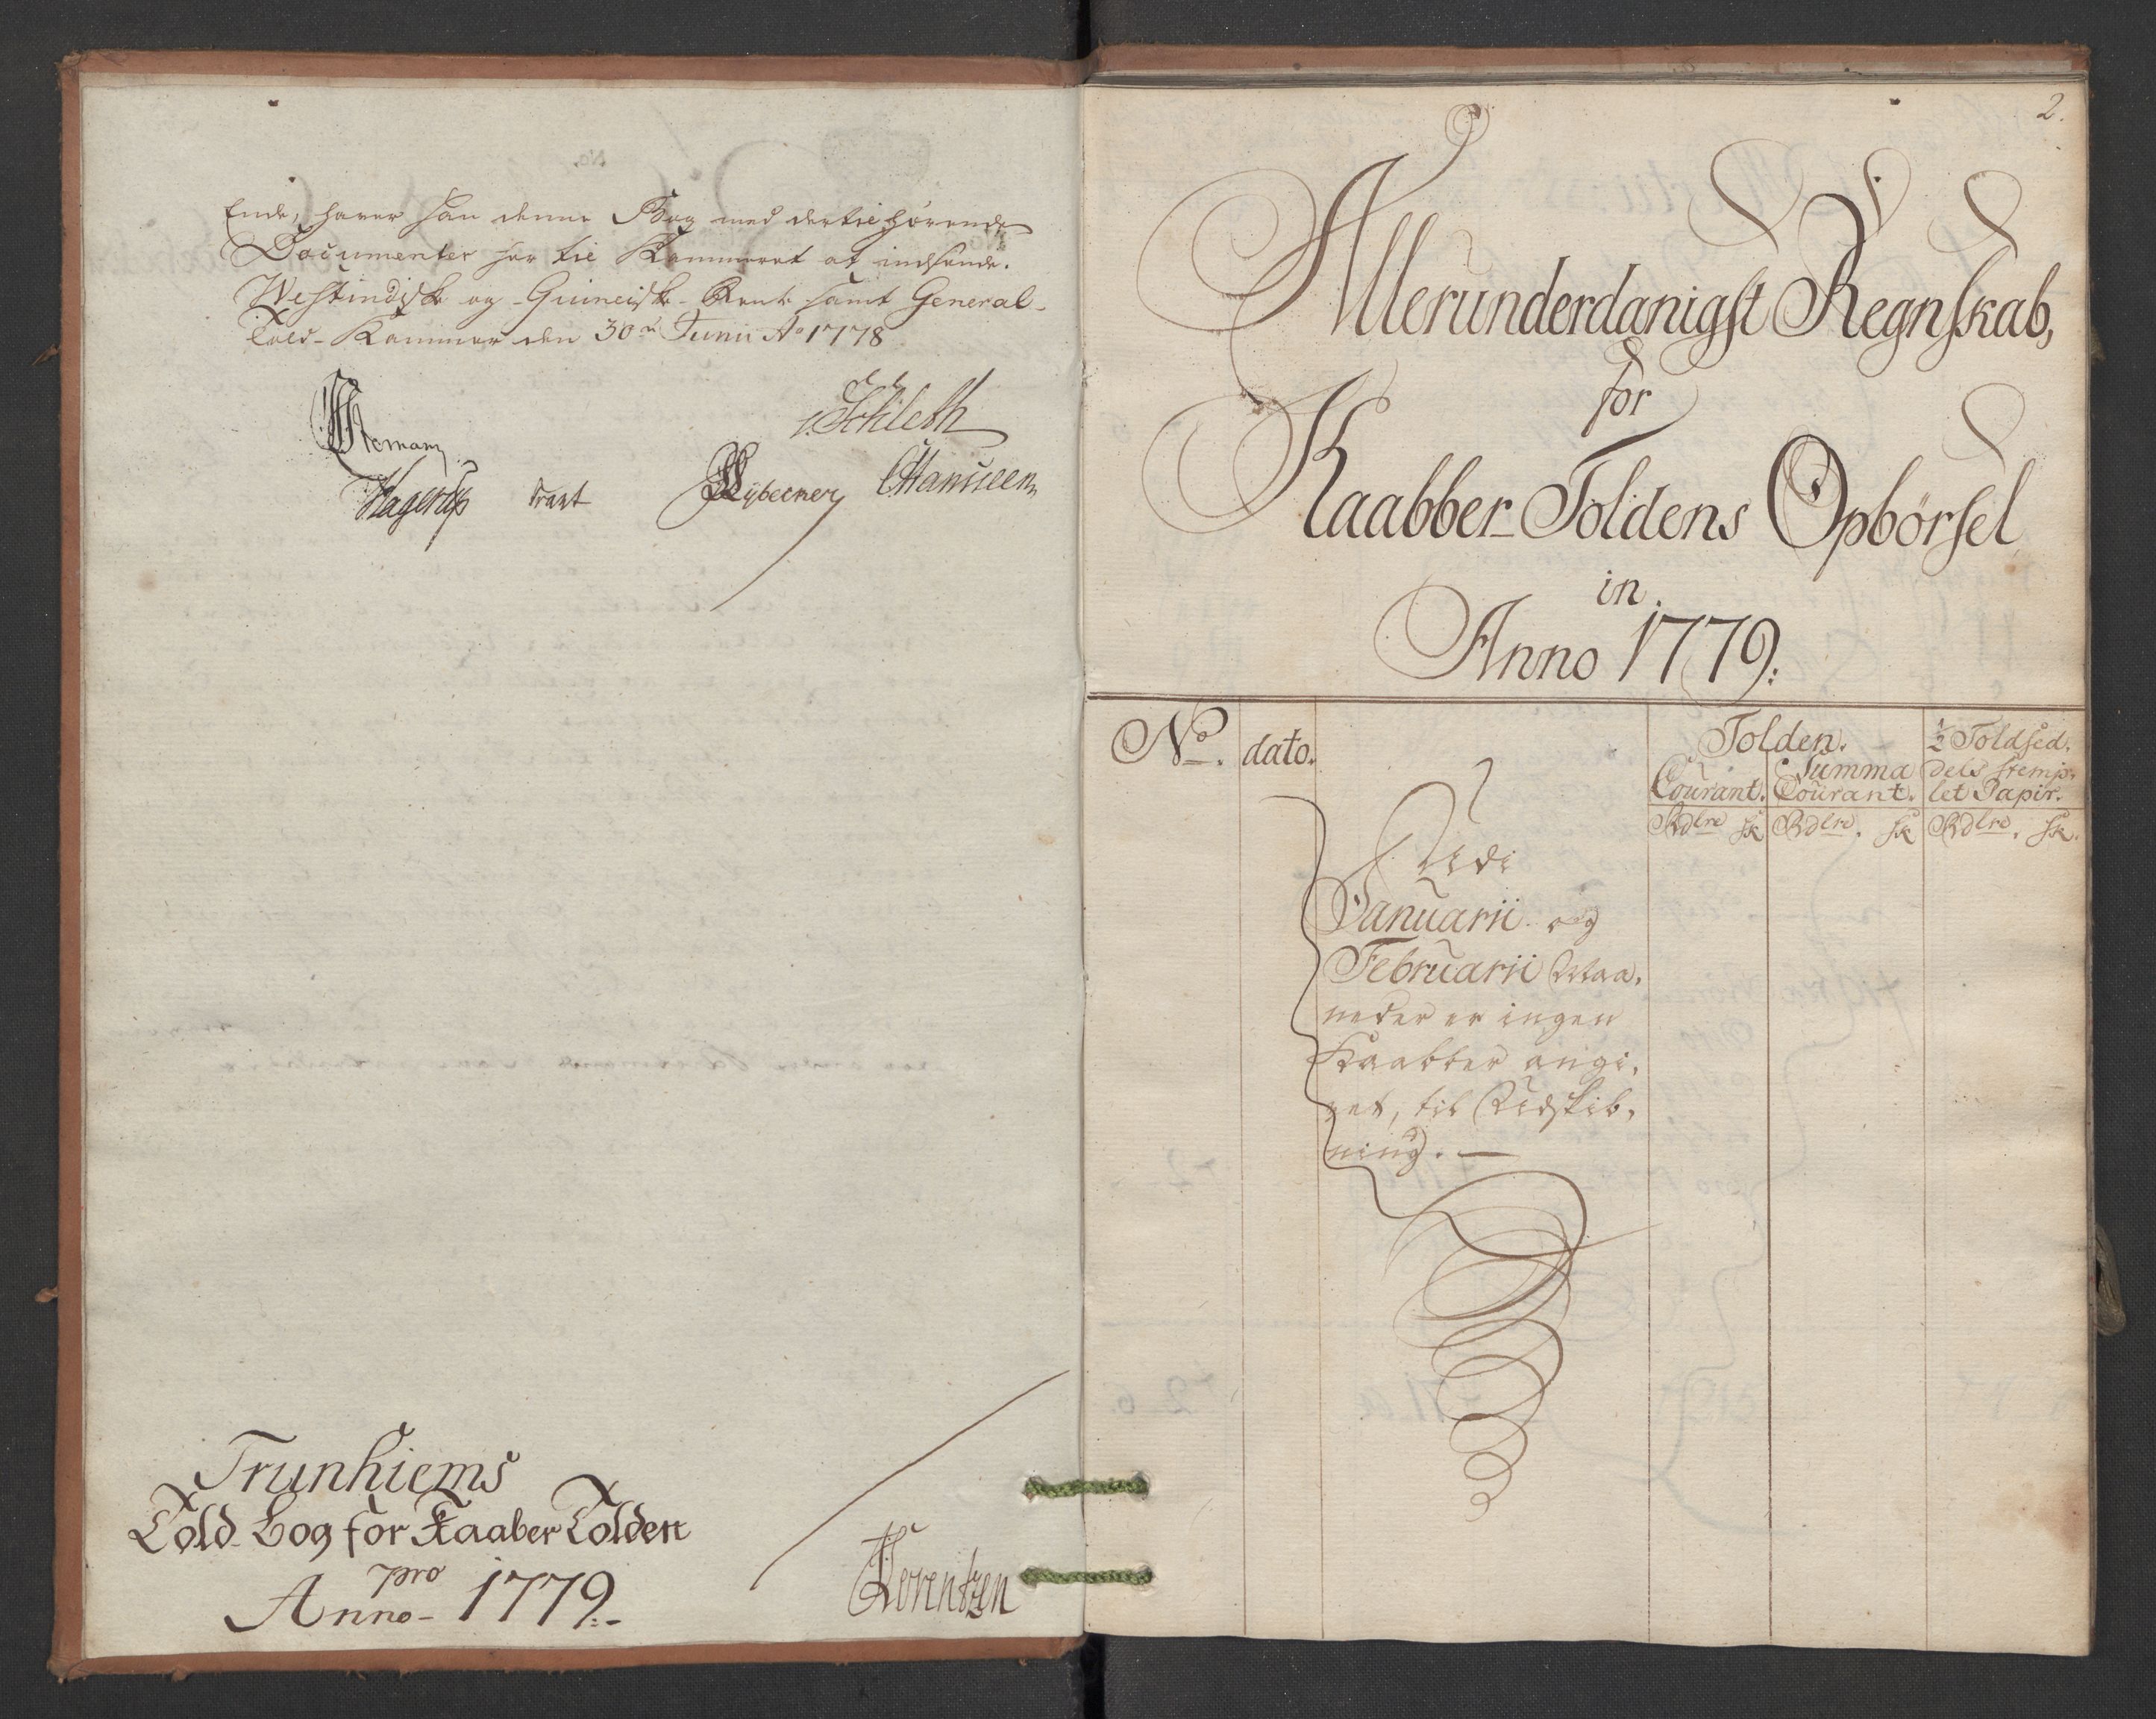 Ende, haver han denne Bog med dertil hørende
Documenter her til Kammeret at indsende.
Westindisk og Guineisk Rente samt General
Told-Kammer den 30te Junii Ao 1778
Schleth
Hagerup Kraft Lÿbecker CHanssen
Trunhiems
Told Bog for Kaaber Tolden
pro
Anno 1779.
Lorentzen
2.
Allerunderdanigst Regnskab,
for
Kaabber-Toldens Opbörsel
in
Anno 1779.
No. dato. Tolden. ½ Toldsed,
Courant. Summa Courant. dels stemp,
let Papir.
Rdlre sk Rdlre. sk Rdlre. sk.
Udi
Januarii og
Februarii Maa,
neder er ingen
Kaabber angi,
vet, til Udskib,
ning. —